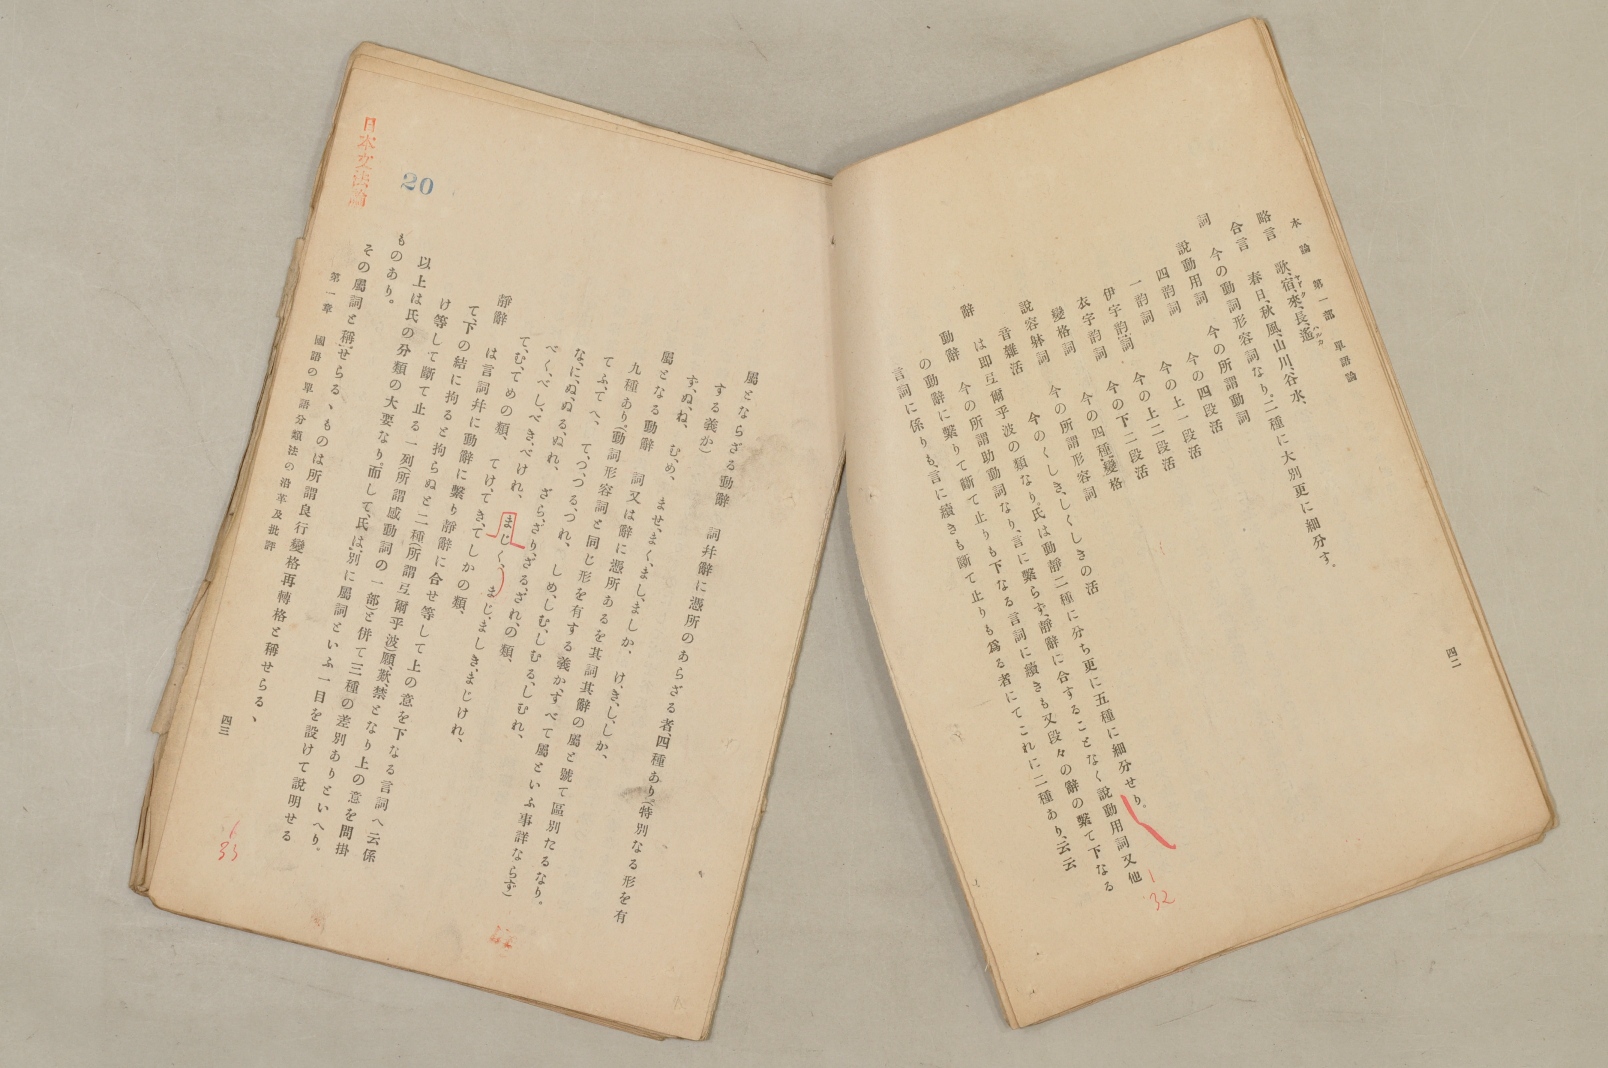 本論 第一部 單語論
四二
略言 歌、宿、來、長、遙
合言 春日、秋風、山川、谷水、
今の動詞形容詞なり、二種に大別更に細分す。
詞
說動用詞 今の所謂動詞
四韵詞 今の四段活
一韵詞 今の上一段活
伊宇韵詞 今の上二段活
衣宇韵詞 今の下二段活
變格詞 今の四種變格
說容躰詞 今の所謂形容詞
音雜活 今のくしき、しくしきの活
辭 は卽弖爾乎波の類なり、氏は動靜二種に分ち更に五種に細分せり。
動辭 今の所謂助動詞なり、言に繫らず、靜辭に合することなく說動用詞又他
の動辭に繫りて斷て止りも下なる言詞に續きも又段々の辭の繫て下なる
言詞に係りも、言に續きも斷て止りも爲る者にてこれに二種あり、云云
屬とならざる動辭 詞幷辭に憑所のあらざる者、四種あり(特別なる形を有
する義か)
ず、ぬ、ね、 む、め、 ませ、まく、まし、ましか、 け、き、し、しか、
屬となる動辭 詞又は辭に憑所あるを其詞其辭の屬と號て區別たるなり。
九種あり、(動詞形容詞と同じ形を有する義か、すべて屬といふ事詳ならず)
てふ、てへ、 て、つ、つる、つれ、 しめ、しむ、しむる、しむれ、
な、に、ぬ、ぬる、ぬれ、 ざら、ざり、ざる、ざれの類、
べく、べし、べき、べけれ、 まじく、 まじ、ましき、まじけれ、
て、む、てめの類、 てけ、てき、てしかの類、
靜辭 は言詞幷に動辭に繫り靜辭に合せ等して上の意を下なる言詞へ云係
て、下の結に拘ると拘らぬと二種(所謂弖爾乎波)願、歎、禁となり上の意を問掛
け等して斷て止る一列(所謂感動詞の一部)と併て三種の差別ありといへり。
以上は氏の分類の大要なり。而して、氏は、別に屬詞といふ一目を設けて說明せる
ものあり。
その屬詞と稱せらるゝものは所謂良行變格再轉格と稱せらるゝ
第一章 國語の單語分類法の沿革及批評
四三
日本文法論
20
32
33